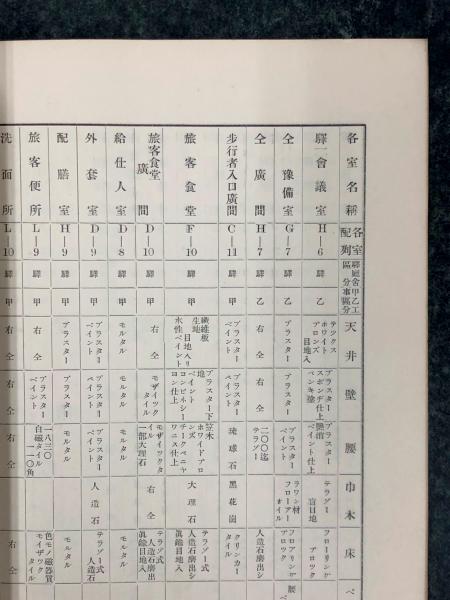 各室名稱
各室配列
驛廳舍區分
甲乙工事區分
天井
壁
腰
巾木
床
驛會議室
H—6
驛
乙
テックス
ホワイト
ブロンズ
目地入
プラスター
スポンヂ仕上
ペンキ塗
艶消
ペイント仕上
テラゾー
盲目地
フローリング
ブロック
仝豫備室
G—7
驛
乙
プラスター
プラスター
プラスター
ペイント
ラワン材
フローアー
オイル
フロアリング
ブロック
仝廣間
H—7
驛
乙
右仝
右仝
二〇〇迄
テラゾー
人造石磨出シ
步行者入口廣間
C—11
驛
甲
プラスター
ペイント
プラスター
ペイント
琉球石
黑花崗
クリンカー
タイル
旅客食堂
F—10
驛
甲
纖維板
生地
目地入リ
水性ペイント
プラスター下
地
ペイント
コンビネーシー
ヨン仕上
笠木
ホワイトブロンズ
チークベニヤ
ワニス仕上
大理石
テラゾー式
人造石磨出
眞鍮目地入
旅客食堂廣間
D—10
驛
甲
右仝
モザイック
タイル
モザイックタ
イル
一部大理石
右仝
テラゾー式
人造石磨出
眞鍮目地入
給仕人室
D—8
驛
甲
モルタル
モルタル
モルタル
モルタル
外套室
D—9
驛
甲
プラスター
ペイント
右仝
プラスター
ペイント
人造石
テラゾー式
人造石
配膳室
H—9
驛
甲
プラスター
プラスター
モルタル
モルタル
旅客便所
L—9
驛
甲
右仝
プラスター
ペイント
一八三〇
白磁タイル
一一〇角
色モノ磁器質
モイザック
タイル
洗面所
L—10
驛
甲
右仝
右仝
右仝
右仝